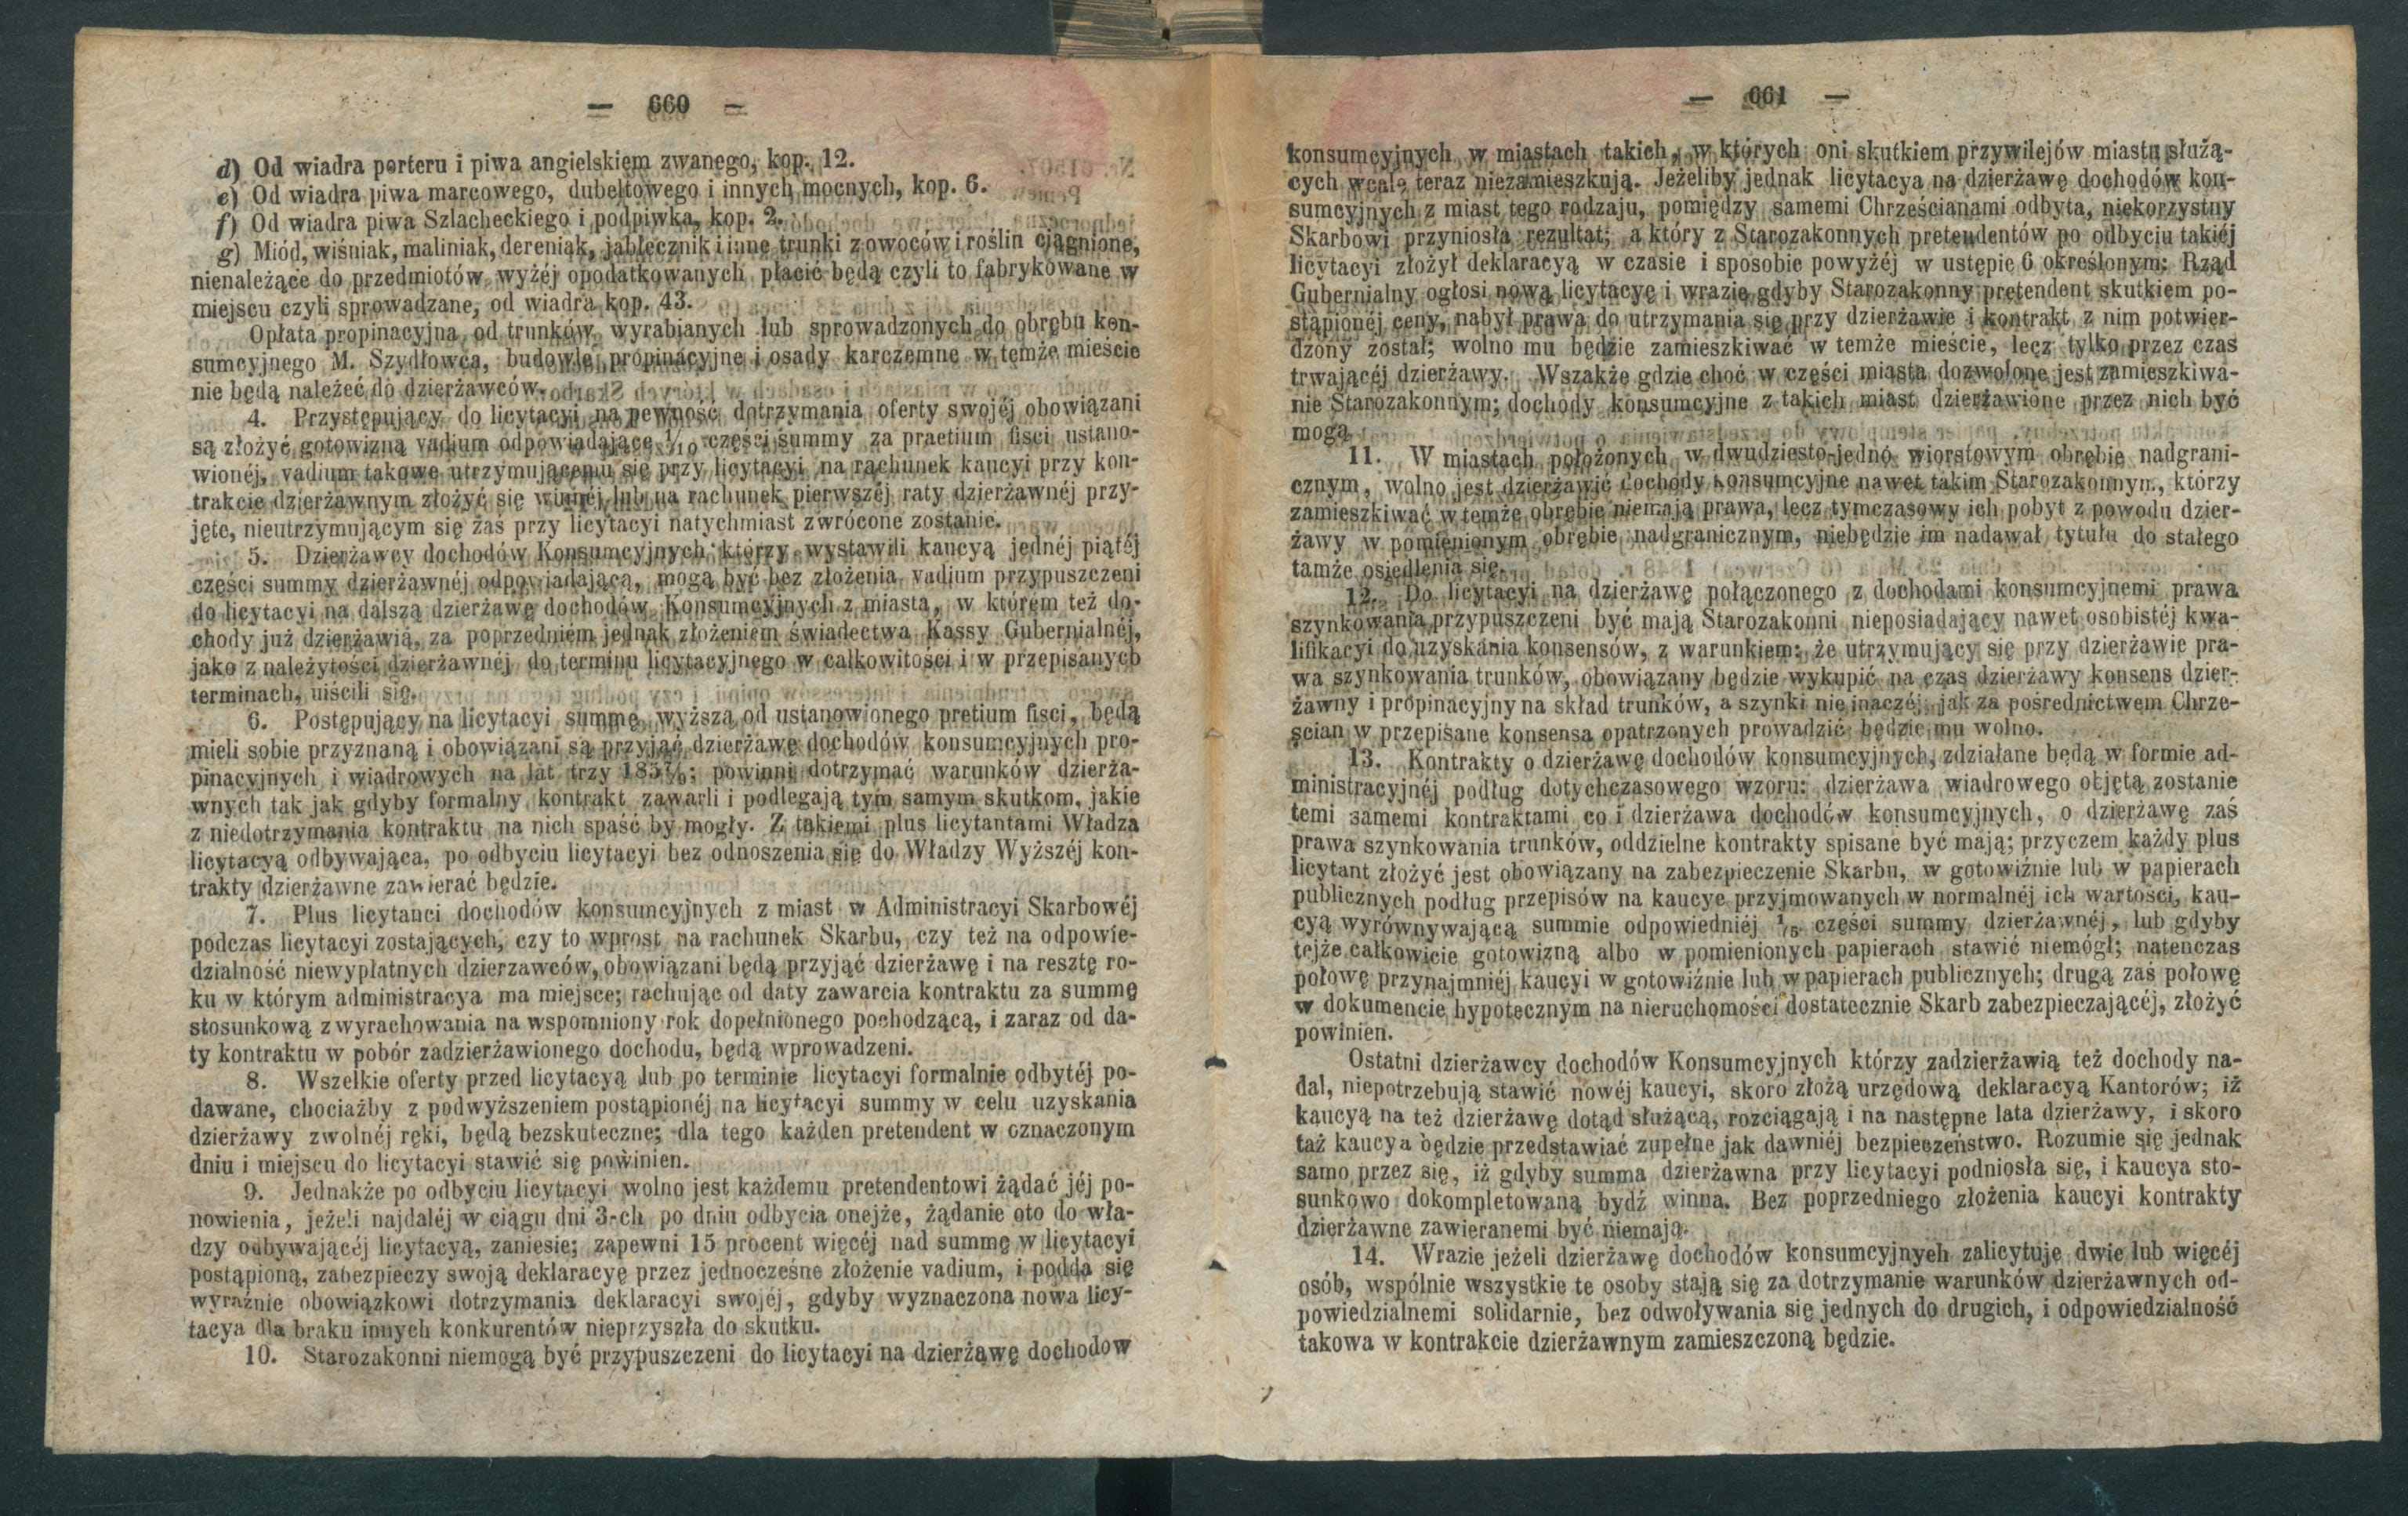 — 660 —
d) Od wiadra porteru i piwa angielskiem zwanego, kop. 12.
e) Od wiadra piwa marcowego, dubeltowego i innych mocnych, kop. 6.
f) Od wiadra piwa Szlacheckiego i podpiwka, kop. 2.
g) Miód, wiśniak, maliniak, dereniak, jabłecznik i inne trunki z owoców i roślin ciągnione,
nienależące do przedmiotów wyżéj opodatkowanych płacić będą czyli to fabrykowane w
miejscu czyli sprowadzane, od wiadra kop. 43.
Opłata propinacyjna od trunków wyrabianych lub sprowadzonych do obrębu kon-
sumcyjnego M. Szydłowca, budowle propinacyjne i osady karczemne w temże mieście
nie będą należeć do dzierżawców.
4. Przystępujący do licytacyi na pewność dotrzymania oferty swojéj obowiązani
są złożyć gotowizną vadium odpowiadające 1/10 części summy za praetium fisci ustano-
wionéj, vadium takowe utrzymującemu się przy licytacyi na rachunek kaucyi przy kon-
trakcie dzierżawnym złożyć się winnéj lub na rachunek pierwszéj raty dzierżawnéj przy-
jęte, nieutrzymującym się zaś przy licytacyi natychmiast zwrócone zostanie.
5. Dzierżawcy dochodów Konsumcyjnych którzy wystawili kaucyą jednéj piątéj
części summy dzierżawnéj odpowiadającą, mogą być bez złożenia vadium przypuszczeni
do licytacyi na dalszą dzierżawę dochodów Konsumcyjnych z miasta, w którém też do-
chody już dzierżawią, za poprzedniém jednak złożeniem świadectwa Kassy Gubernialnéj,
jako z należytości dzierżawnéj do terminu licytacyjnego w całkowitości i w przepisanych
terminach, uiścili się.
6. Postępujący na licytacyi summę wyższą od ustanowionego pretium fisci, będą
mieli sobie przyznaną i obowiązani są przyjąć dzierżawę dochodów konsumcyjnych pro-
pinacyjnych i wiadrowych na lat trzy powinni dotrzymać warunków dzierża-
wnych tak jak gdyby formalny kontrakt zawarli i podlegają tym samym skutkom, jakie
z niedotrzymania kontraktu na nich spaść by mogły. Z takiemi plus licytantami Władza
licytacyą odbywająca, po odbyciu licytacyi bez odnoszenia się do Władzy Wyższéj kon-
trakty dzierżawne zawierać będzie.
7. Plus licytanci dochodów konsumcyjnych z miast w Administracyi Skarbowéj
podczas licytacyi zostających, czy to wprost na rachunek Skarbu, czy też na odpowie-
dzialność niewypłatnych dzierzawców, obowiązani będą przyjąć dzierżawę i na resztę ro-
ku w którym administracya ma miejsce; rachując od daty zawarcia kontraktu za summę
stosunkową z wyrachowania na wspomniony rok dopełnionego pochodzącą, i zaraz od da-
ty kontraktu w pobór zadzierżawionego dochodu, będą wprowadzeni.
8. Wszelkie oferty przed licytacyą lub po terminie licytacyi formalnie odbytéj po-
dawane, chociażby z podwyższeniem postąpionéj na licytacyi summy w celu uzyskania
dzierżawy zwolnéj ręki, będą bezskuteczne; dla tego każden pretendent w oznaczonym
dniu i miejscu do licytacyi stawić się powinien.
9. Jednakże po odbyciu licytacyi wolno jest każdemu pretendentowi żądać jéj po-
nowienia, jeżeli najdaléj w ciągu dni 3-ch po dniu odbycia onejże, żądanie oto do wła-
dzy odbywającéj licytacyą, zaniesie; zapewni 15 procent więcéj nad summę w licytacyi
postąpioną, zabezpieczy swoją deklaracyę przez jednocześne złożenie vadium, i podda się
wyraźnie obowiązkowi dotrzymania deklaracyi swojéj, gdyby wyznaczona nowa licy-
tacya dla braku innych konkurentów nieprzyszła do skutku.
10. Starozakonni niemogą być przypuszczeni do licytacyi na dzierżawę dochodow
— 661 —
konsumcyjnych w miastach takich, w których oni skutkiem przywilejów miastu służą-
cych wcale teraz niezamieszkują. Jeżeliby jednak licytacya na dzierżawę dochodów kon-
sumcyjnych z miast tego rodzaju, pomiędzy samemi Chrześcianami odbyta, niekorzystny
Skarbowi przyniosła rezultat; a który z Starozakonnych pretendentów po odbyciu takiéj
licytacyi złożył deklaracyą w czasie i sposobie powyżéj w ustępie 6 określonym: Rząd
Gubernialny ogłosi nową licytacyę i wrazie gdyby Starozakonny pretendent skutkiem po-
stąpionéj ceny, nabył prawa do utrzymania się przy dzierżawie i kontrakt z nim potwier-
dzony został; wolno mu będzie zamieszkiwać w temże mieście, lecz tylko przez czas
trwającéj dzierżawy. Wszakże gdzie choć w części miasta dozwolone jest zamieszkiwa-
nie Starozakonnym; dochody konsumcyjne z takich miast dzierżawione przez nich być
mogą.
11. W miastach położonych w dwudziesto-jedno wiorstowym obrębie nadgrani-
cznym, wolno jest dzierżawić dochody konsumcyjne nawet takim Starozakonnym, którzy
zamieszkiwać w temże obrębie niemają prawa, lecz tymczasowy ich pobyt z powodu dzier-
żawy w pomienionym obrębie nadgranicznym, niebędzie im nadawał tytułu do stałego
tamże osiedlenia się.
12. Do licytacyi na dzierżawę połączonego z dochodami konsumcyjnemi prawa
szynkowania przypuszczeni być mają Starozakonni nieposiadający nawet osobistéj kwa-
lifikacyi do uzyskania konsensów, z warunkiem: że utrzymujący się przy dzierżawie pra-
wa szynkowania trunków, obowiązany będzie wykupić na czas dzierżawy konsens dzier-
żawny i propinacyjny na skład trunków, a szynki nie inaczéj, jak za pośrednictwem Chrze-
ścian w przepisane konsensa opatrzonych prowadzić będzie mu wolno.
13. Kontrakty o dzierżawę dochodów konsumcyjnych, zdziałane będą w formie ad-
ministracyjnéj podług dotychczasowego wzoru: dzierżawa wiadrowego objętą zostanie
temi samemi kontraktami co i dzierżawa dochodów konsumcyjnych, o dzierżawę zaś
prawa szynkowania trunków, oddzielne kontrakty spisane być mają; przyczem każdy plus
licytant złożyć jest obowiązany na zabezpieczenie Skarbu, w gotowiźnie lub w papierach
publicznych podług przepisów na kaucye przyjmowanych w normalnéj ich wartości, kau-
cyą wyrównywającą summie odpowiedniéj 1/5 części summy dzierżawnéj, lub gdyby
tejże całkowicie gotowizną albo w pomienionych papierach stawić niemógł; natenczas
połowę przynajmniéj kaucyi w gotowiźnie lub w papierach publicznych; drugą zaś połowę
w dokumencie hypotecznym na nieruchomości dostatecznie Skarb zabezpieczającéj, złożyć
powinien.
Ostatni dzierżawcy dochodów Konsumcyjnych którzy zadzierżawią też dochody na-
dal, niepotrzebują stawić nowéj kaucyi, skoro złożą urzędową deklaracyą Kantorów; iż
kaucyą na też dzierżawę dotąd służącą, rozciągają i na następne lata dzierżawy, i skoro
taż kaucya będzie przedstawiać zupełne jak dawniéj bezpieczeństwo. Rozumie się jednak
samo przez się, iż gdyby summa dzierżawna przy licytacyi podniosła się, i kaucya sto-
sunkowo dokompletowaną bydź winna. Bez poprzedniego złożenia kaucyi kontrakty
dzierżawne zawieranemi być niemają.
14. Wrazie jeżeli dzierżawę dochodów konsumcyjnych zalicytuje dwie lub więcéj
osób, wspólnie wszystkie te osoby stają się za dotrzymanie warunków dzierżawnych od-
powiedzialnemi solidarnie, bez odwoływania się jednych do drugich, i odpowiedzialność
takowa w kontrakcie dzierżawnym zamieszczoną będzie.